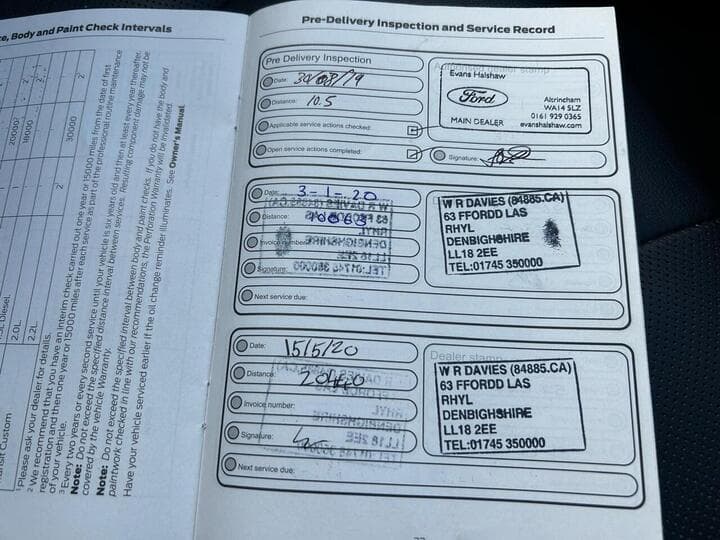 ce, Body and Paint Check Intervals
20000²
18000
2²
2²
30000
2²
2²
Diesel
2.0L
2.2L
ansit Custom
¹ Please ask your dealer for details.
² We recommend that you have an interim check carried out one year or 15000 miles from the date of first
registration and then one year or 15000 miles after each service as part of the professional routine maintenance
of your vehicle.
³ Every two years or every second service until your vehicle is six years old and then at least every year thereafter.
Note: Do not exceed the specified distance interval between services. Resulting component damage may not be
covered by the vehicle Warranty.
Note: Do not exceed the specified interval between body and paint checks. If you do not have the body and
paintwork checked in line with our recommendations, the Perforation Warranty will be invalidated.
Have your vehicle serviced earlier if the oil change reminder illuminates. See Owner's Manual.
Pre-Delivery Inspection and Service Record
Pre Delivery Inspection
Date: 30/08/19
Distance: 10.5
Applicable service actions checked:
Open service actions completed:
Authorised dealer stamp
Evans Halshaw
Ford
MAIN DEALER
Altrincham
WA14 5LZ
0161 929 0365
evanshalshaw.com
Signature:
Date: 3-1-20
Distance:
Invoice number:
Signature:
Next service due:
W R DAVIES (84885.CA)
63 FFORDD LAS
RHYL
DENBIGHSHIRE
LL18 2EE
TEL:01745 350000
Date: 15/5/20
Distance: 20440
Invoice number:
Signature:
Next service due:
Dealer stamp
W R DAVIES (84885.CA)
63 FFORDD LAS
RHYL
DENBIGHSHIRE
LL18 2EE
TEL:01745 350000